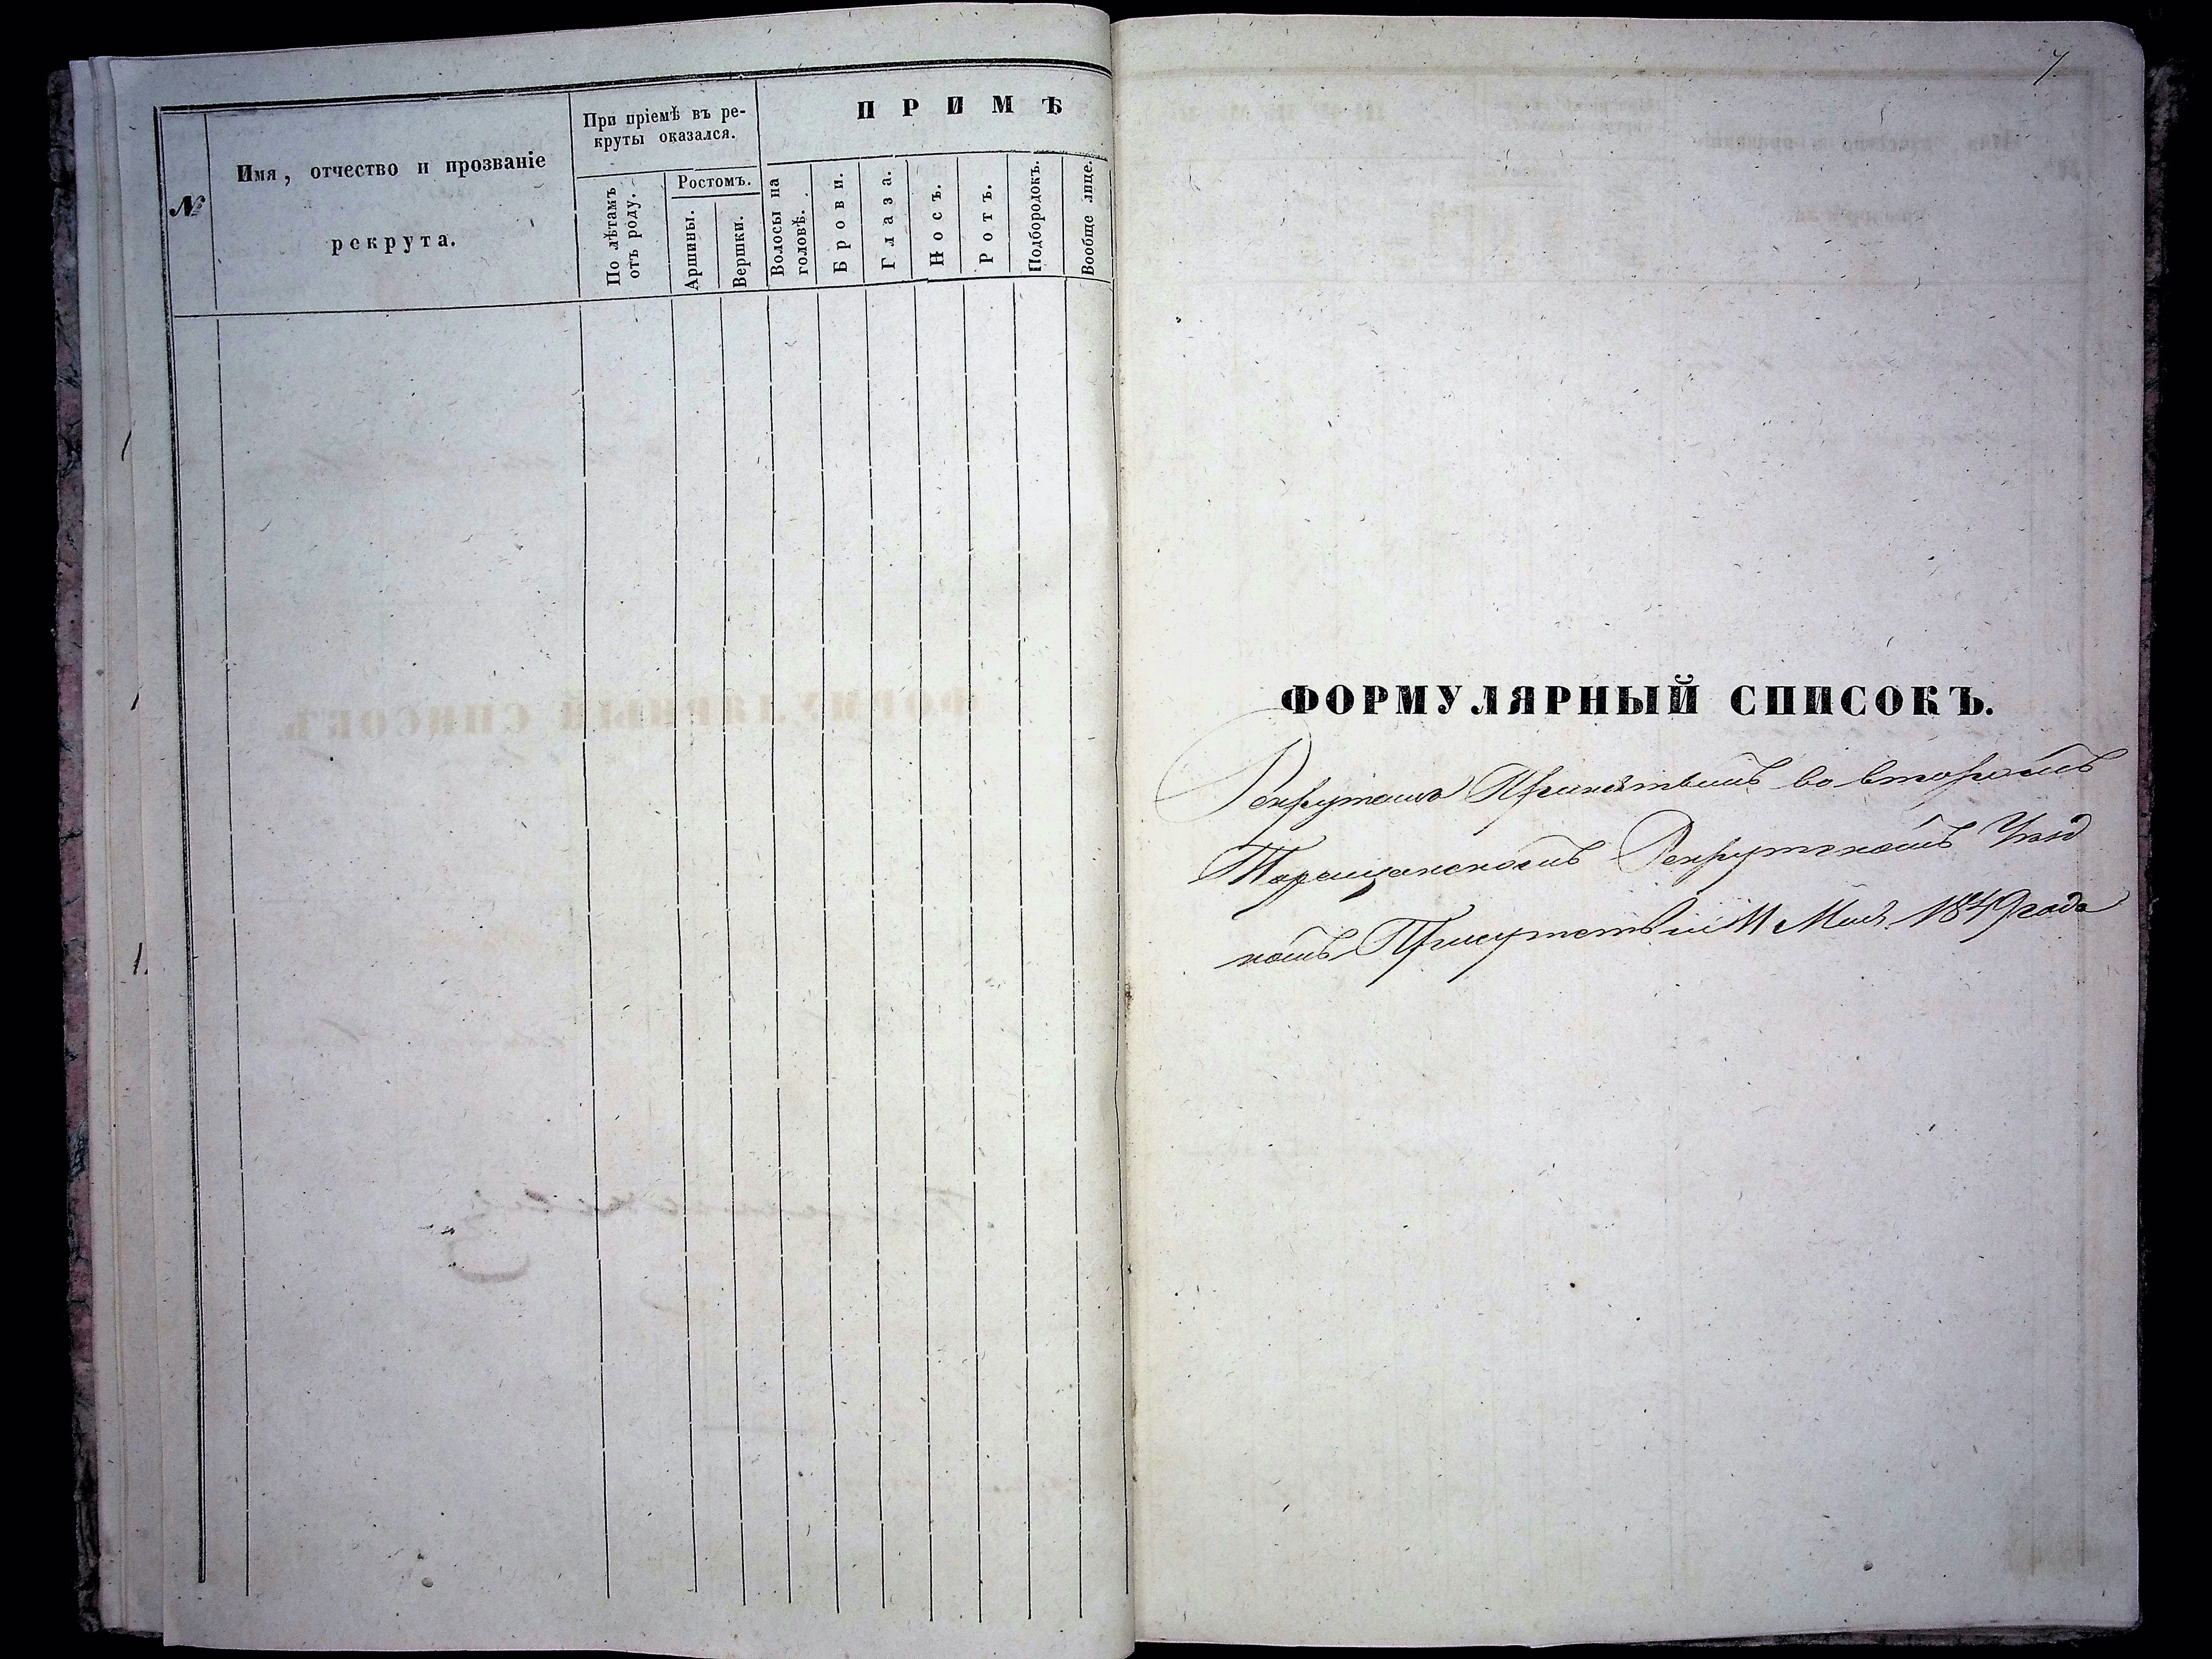 №
Имя, отчество и прозваніе
рекрута.
При пріемѣ въ ре-
круты оказался.
По лѣтамъ
отъ роду.
Ростомъ.
Аршины.
Вершки.
П Р И М Ѣ
Волосы на
головѣ.
Брови.
Глаза.
Носъ.
Ротъ.
Подбородокъ.
Вообще лице.
7
ФОРМУЛЯРНЫЙ СПИСОКЪ.
Рекрутамъ Принятымъ во второмъ
Таращанскомъ Рекрутскомъ Уѣзд
номъ Присутствіи 11 Мая 1849 года